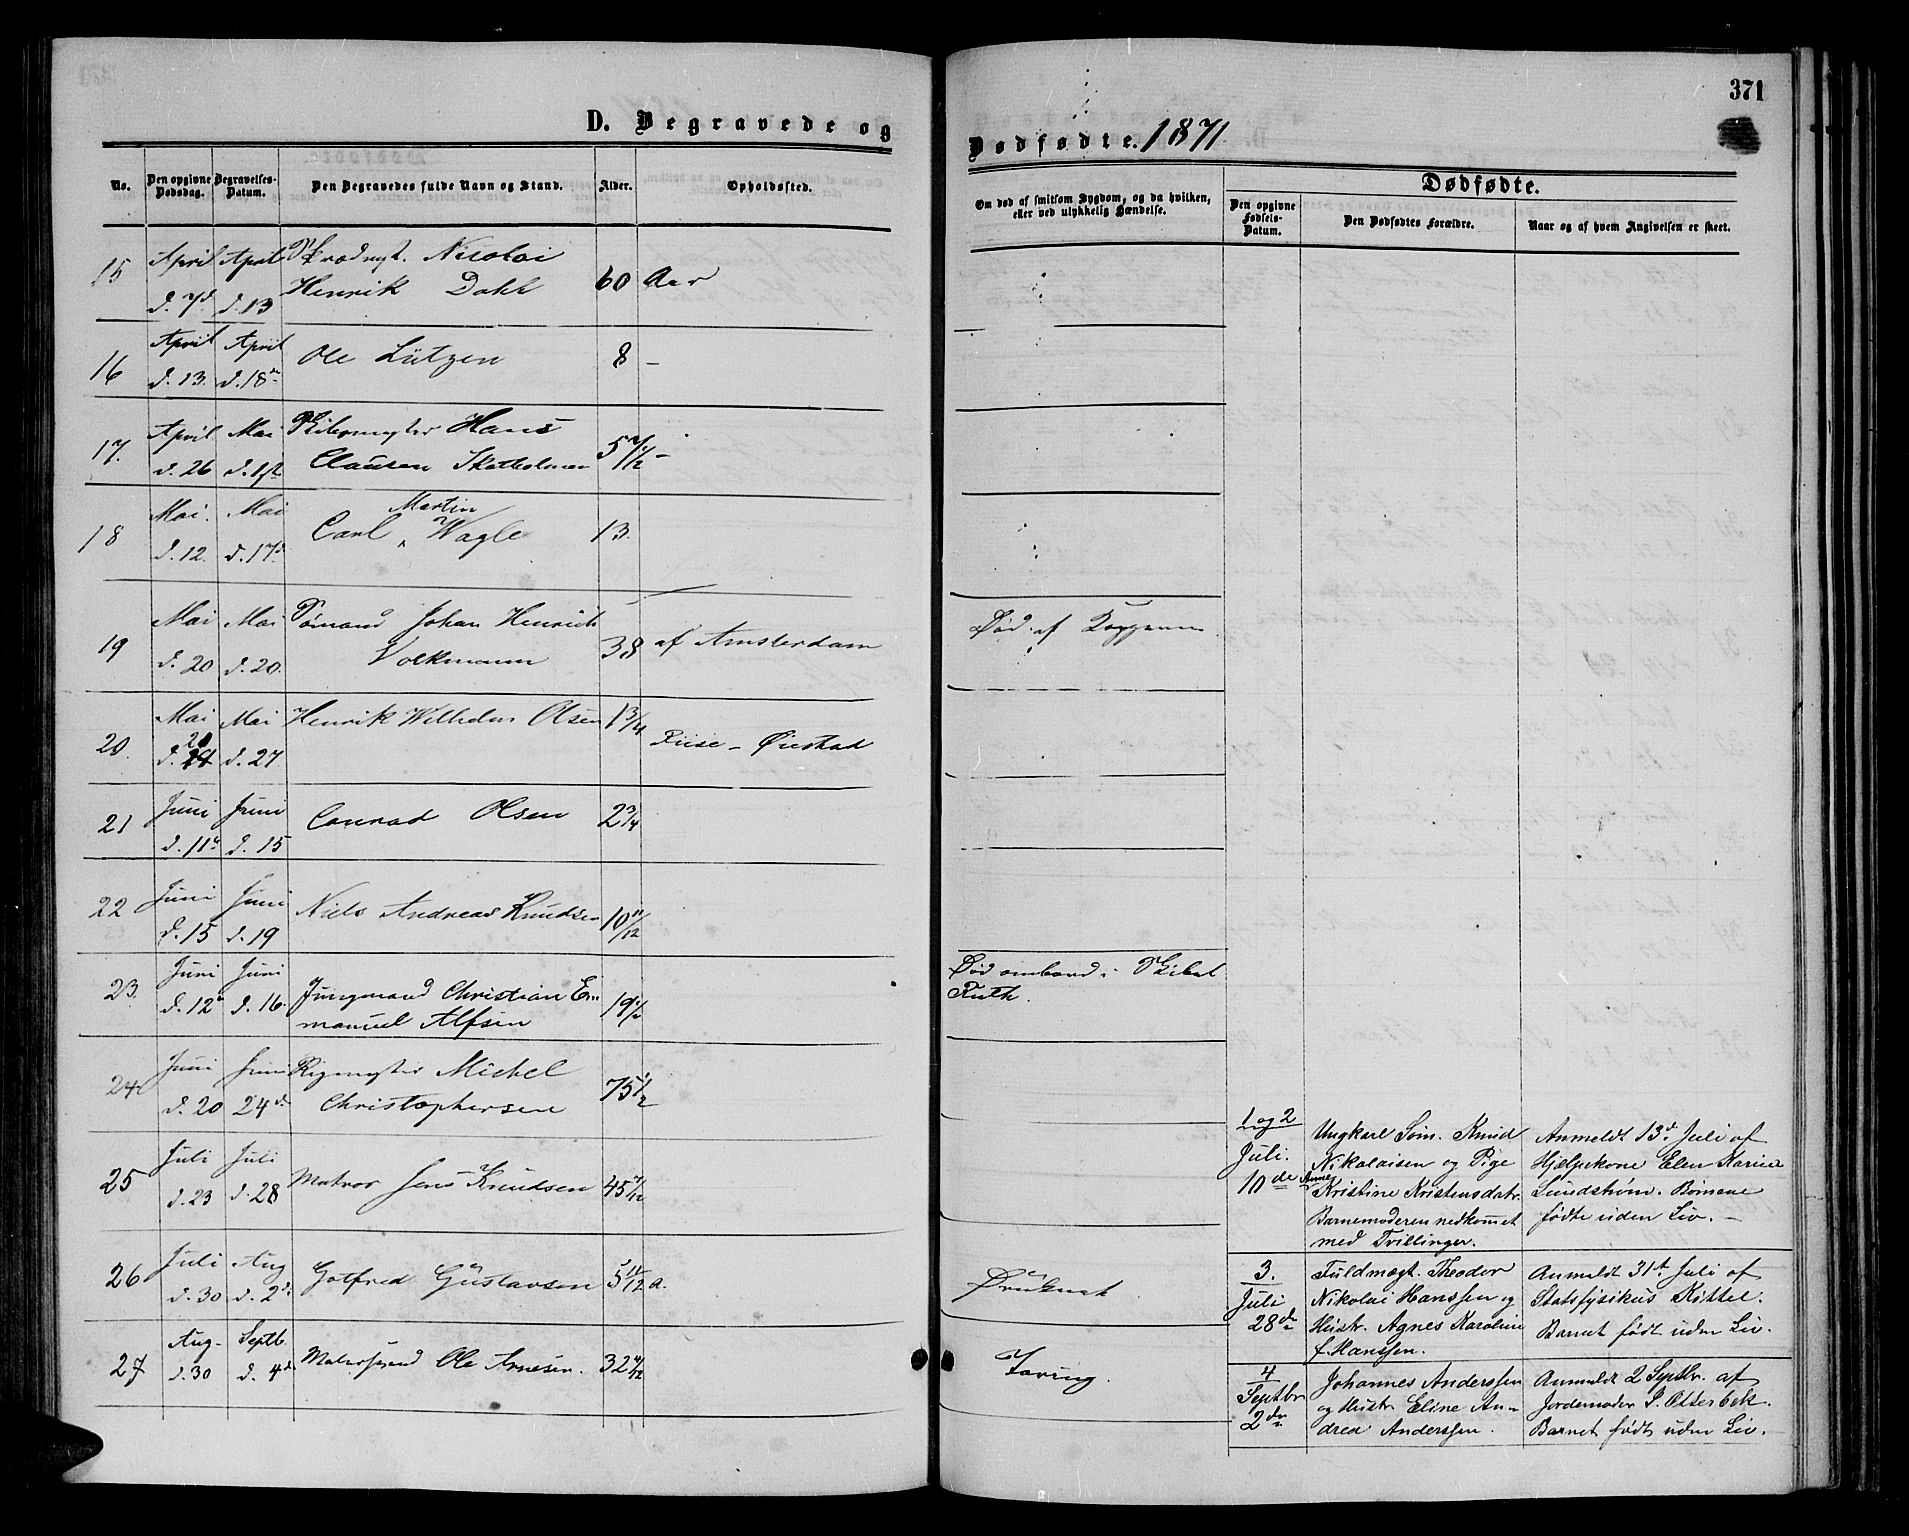 371
D. Begravede og
Dødfødte. 1871
No.
Den opgivne Dødsdag.
Begravelses-Datum.
Den Begravedes fulde Navn og Stand.
Alder.
Opholdssted.
Om død af smitsom Sygdom, og da hvilken, eller ved ulykkelig Hændelse.
Dødfødte.
Den opgivne Fødsels-Datum.
Den Dødfødtes Forældre.
Naar og af hvem Angivelsen er skeet.
15 April April Nicolai
d. 7d. d. 13 Henrik Dahl 60 Aar
16 April April Ole Lützen 8 –
d. 13. d. 18de
17. April Mai Hans
d. 26 d. 1st Clausen Skatholmen 5 7/12 –
18 Mai. Mai Martin
d. 12. d. 17d. Carl Wagle 13.
19 Mai Mai Sømand Johan Henrich
d. 20 d. 20. Volkmann 38 af Amsterdam
Død af Kopperne
20. Mai Mai Henrik Wilhelm Olsen 1 3/4
d. 20 d. 27 Riise – Øiestad
21 Juni Juni Conrad Olsen 2 3/4
d. 11te d. 15
22 Juni Juni Niels Andreas Knudsen 10 11/12
d. 15 d. 19
23. Juni Juni Jungmand Christian Em
d. 12te d. 16. manuel Alfsen 19 1/2
Død ombord i Skibet
Ruth.
24 Juni Juni Rigmester Michel
d. 20 24de Christophersen 75 1/2
25 Juli Juli Matros Jens Knudsen 45 7/12
d. 23 d. 28
26 Juli Aug Gotfred Gustavsen 5 11/12 a.
d. 30 d. 2d.
Druknet
27 Aug. Septb. Ole Arnesen. 32 4/12
d. 30 d. 4d
Tæring.
1 og 2
Juli.
10de
Ungkarl Søm. Knud
Nikolaisen og Pige
Anne
Kristine Kristensdatr.
Barnemoderen nedkommet
med Tvillinger.
Anmeldt 13de Juli af
Hjælpekone Elen Karine
Lundstrøm. Børnene
fødte uden Liv. –
3.
Juli
28de
Fuldmægt. Theodor
Nikolai Hanssen og
Hustr. Agnes Karoline
f. Hanssen.
Anmeldt 31t Juli af
Statsfysikus Kittel.
Barnet født uden Liv.
4
Septbr
2den
Johannes Anderssen
og Hustr Eline An-
drea Anderssen.
Anmeldt 2 Septbr. af
Jordemoder P. Otterbek.
Barnet født uden Liv.